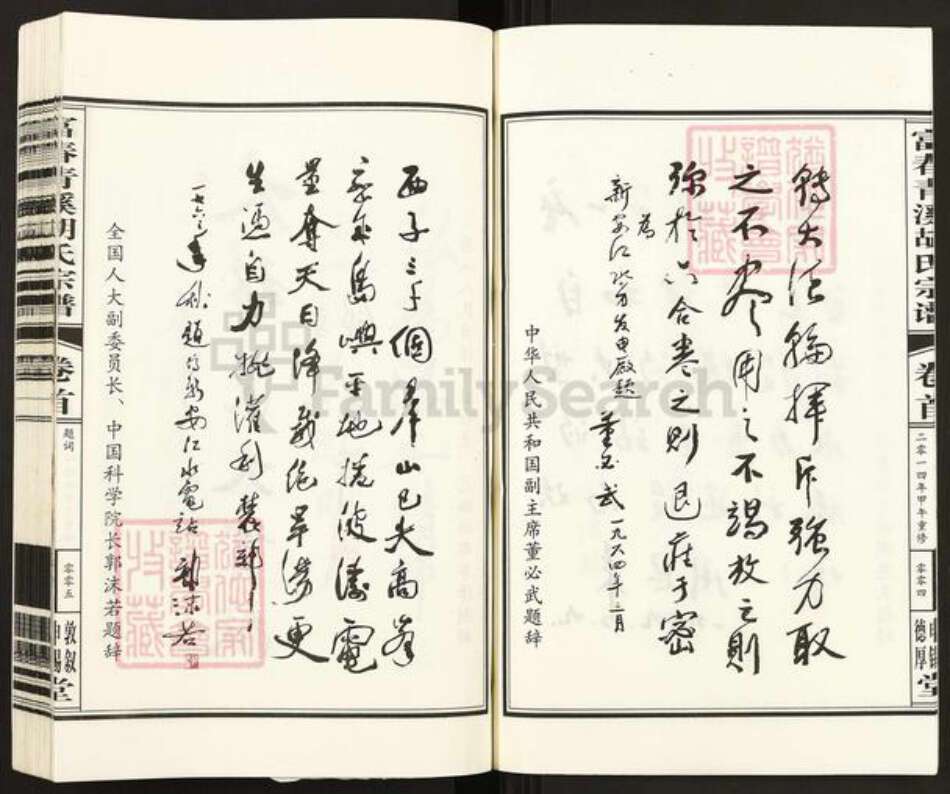 富春青溪胡氏宗谱
卷首
二零一四年甲午重修
零零四
转大法轮挥斥强力取
之不尽用之不竭放之则
弥于六合卷之则退藏于密
为
新安江水力发电厰题 董必武 一九六四年二月
中华人民共和国副主席董必武题辞
西子三千個群山已失高峯
峦成島嶼平地捲波濤電
量奪天日降威絶旱澇更
生憑自力排灌利
一九六三年秋題為新安江水電站 郭沫若
全国人大副委员长、中国科学院长郭沫若题辞
富春青溪胡氏宗谱
卷首
题词
零零五
敦叙
堂
FamilySearch